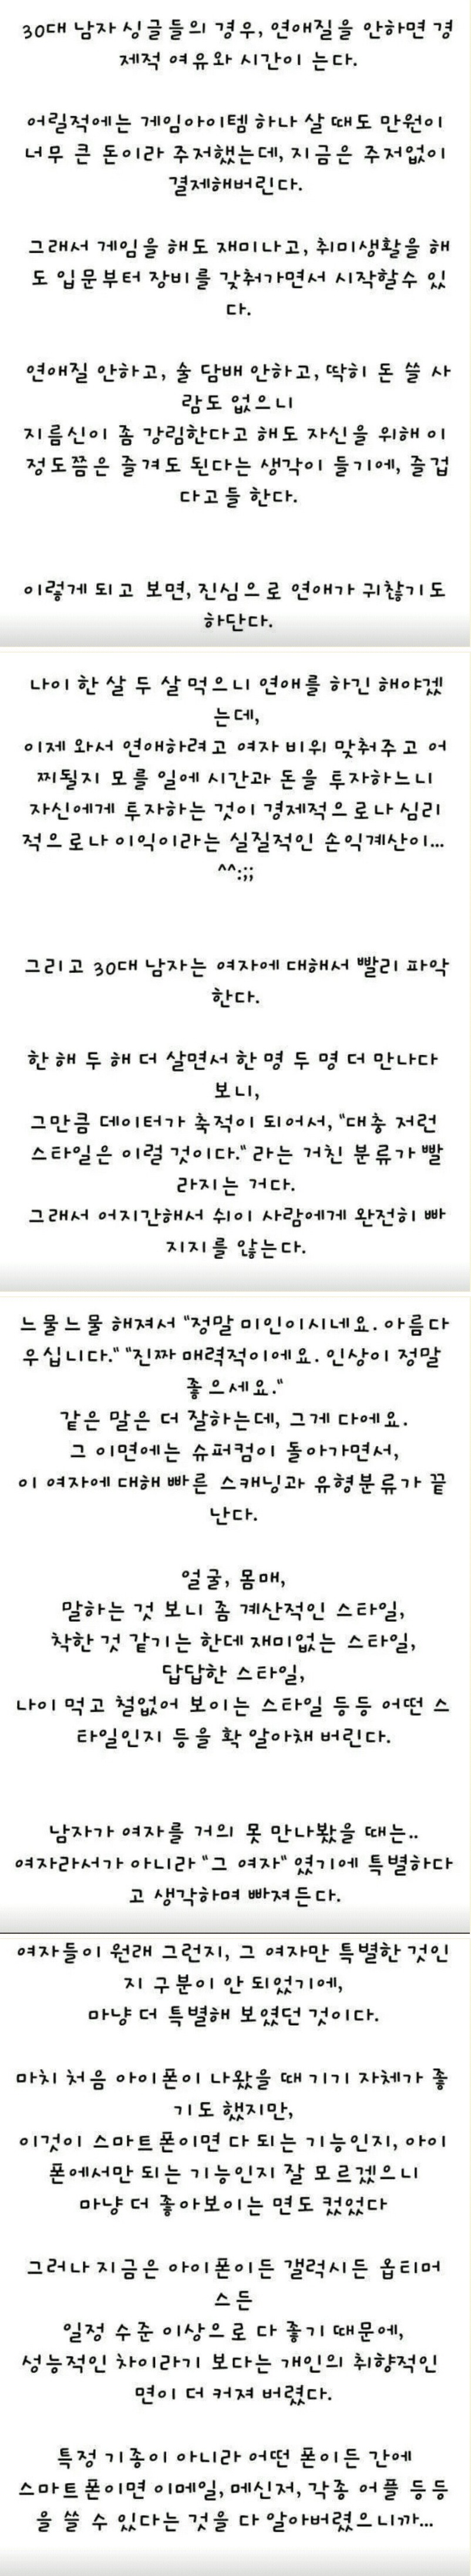 30대 남자 싱글들의 경우, 연애질을 안하면 경
제적 여유와 시간이 는다.
어릴적에는 게임아이템 하나 살 때도 만원이
너무 큰 돈이라 주저했는데, 지금은 주저없이
결제해버린다.
그래서 게임을 해도 재미나고, 취미생활을 해
도 입문부터 장비를 갖춰가면서 시작할수 있
다.
연애질 안하고, 술 담배 안하고, 딱히 돈 쓸 사
람도 없으니
지름신이 좀 강림한다고 해도 자신을 위해 이
정도쯤은 즐겨도 된다는 생각이 들기에, 즐겁
다고들 한다.
이렇게 되고 보면, 진심으로 연애가 귀찮기도
하단다.
나이 한 살 두 살 먹으니 연애를 하긴 해야겠
는데,
이제 와서 연애하려고 여자 비위 맞춰주고 어
찌될지 모를 일에 시간과 돈을 투자하느니
자신에게 투자하는 것이 경제적으로나 심리
적으로나 이익이라는 실질적인 손익계산이...
^^:;;
그리고 30대 남자는 여자에 대해서 빨리 파악
한다.
한 해 두 해 더 살면서 한 명 두 명 더 만나다
보니,
그만큼 데이터가 축적이 되어서, "대충 저런
스타일은 이럴 것이다." 라는 거친 분류가 빨
라지는 거다.
그래서 어지간해서 쉬이 사람에게 완전히 빠
지지를 않는다.
느물느물 해져서 "정말 미인이시네요. 아름다
우십니다." "진짜 매력적이에요. 인상이 정말
좋으세요."
같은 말은 더 잘하는데, 그게 다에요.
그 이면에는 슈퍼컴이 돌아가면서,
이 여자에 대해 빠른 스캐닝과 유형분류가 끝
난다.
얼굴, 몸매,
말하는 것 보니 좀 계산적인 스타일,
착한 것 같기는 한데 재미없는 스타일,
답답한 스타일,
나이 먹고 철없어 보이는 스타일 등등 어떤 스
타일인지 등을 확 알아채 버린다.
남자가 여자를 거의 못 만나봤을 때는..
여자라서가 아니라 "그 여자" 였기에 특별하다
고 생각하며 빠져든다.
여자들이 원래 그런지, 그 여자만 특별한 것인
지 구분이 안 되었기에,
마냥 더 특별해 보였던 것이다.
마치 처음 아이폰이 나왔을 때 기기 자체가 좋
기도 했지만,
이것이 스마트폰이면 다 되는 기능인지, 아이
폰에서만 되는 기능인지 잘 모르겠으니
마냥 더 좋아보이는 면도 컸었다
그러나 지금은 아이폰이든 갤럭시든 옵티머
스든
일정 수준 이상으로 다 좋기 때문에,
성능적인 차이라기 보다는 개인의 취향적인
면이 더 커져 버렸다.
특정 기종이 아니라 어떤 폰이든 간에
스마트폰이면 이메일, 메신저, 각종 어플 등등
을 쓸 수 있다는 것을 다 알아버렸으니까...